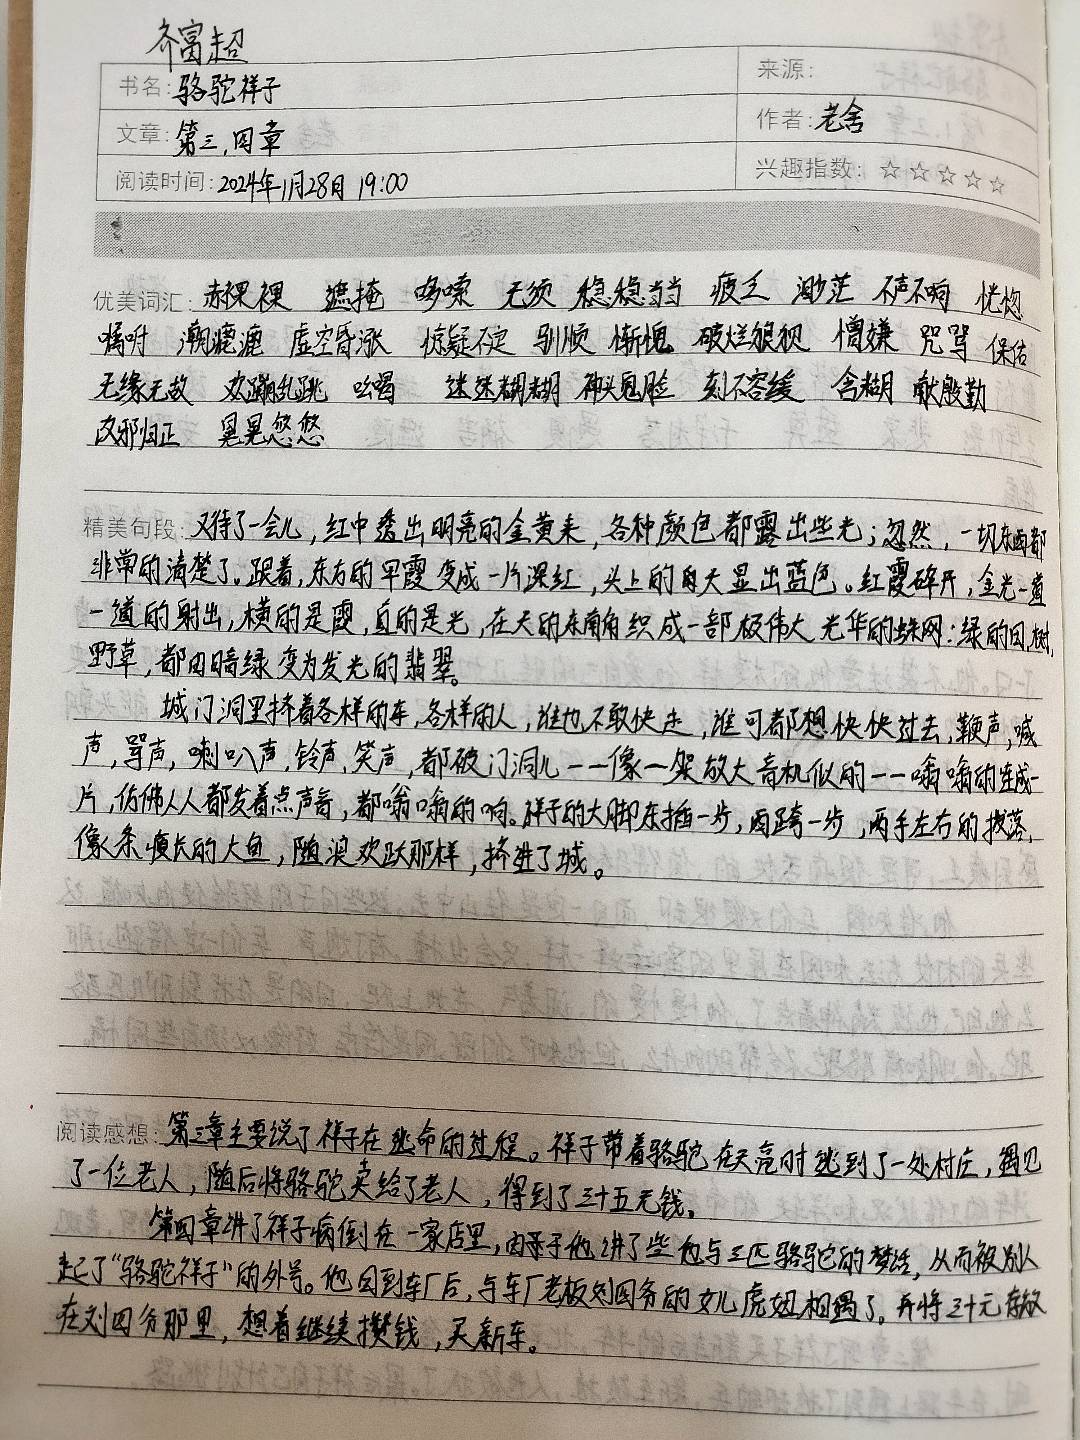 齐富超
书名: 骆驼祥子
来源:
文章: 第三,四章
作者: 老舍
阅读时间: 2024年1月28日 19:00
兴趣指数: ☆☆☆☆☆
优美词汇: 赤裸裸 遮掩 哆嗦 无须 稳稳当当 疲乏 渺茫 不声不响 恍惚
嘱咐 潮漉漉 虚空昏涨 惊疑不定 驯顺 惭愧 破烂狼狈 憎嫌 咒骂 保佑
无缘无故 欢蹦乱跳 吆喝 迷迷糊糊 神头鬼脸 刻不容缓 含糊 献殷勤
改邪归正 晃晃悠悠
精美句段: 又待了一会儿，红中透出明亮的金黄来，各种颜色都露出些光；忽然，一切东西都
非常的清楚了。跟着，东方的早霞变成一片深红，头上的自天显出蓝色。红霞碎开，金光一道
一道的射出，横的是霞，直的是光，在天的东南角织成一部极伟大光华的蛛网：绿的田，树，
野草，都由暗绿变为发光的翡翠。
城门洞里挤着各样的车，各样的人，谁也不敢快走，谁可都想快快过去，鞭声，喊
声，骂声，喇叭声，铃声，笑声，都被门洞儿——像一架放大音机似的——嗡嗡的连成一
片，仿佛人人都发着点声音，都嗡嗡的响。祥子的大脚东插一步，西跨一步，两手左右的拨落，
像条瘦长的大鱼，随浪欢跃那样，挤进了城。
阅读感想: 第三章主要说了祥子在逃命的过程。祥子带着骆驼在天亮时逃到了一处村庄，遇见
了一位老人，随后将骆驼卖给了老人，得到了三十五元钱。
第四章讲了祥子病倒在一家店里，由于他讲了些他与三匹骆驼的梦话，从而被别人
起了“骆驼祥子”的外号。他回到车厂后，与车厂老板刘四爷的女儿虎妞相遇了。并将三十元存放
在刘四爷那里，想着继续攒钱，买新车。